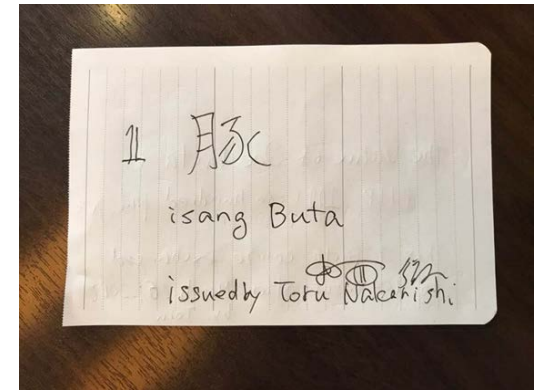 1 豚
isang Buta
issued by Toru Nakanishi